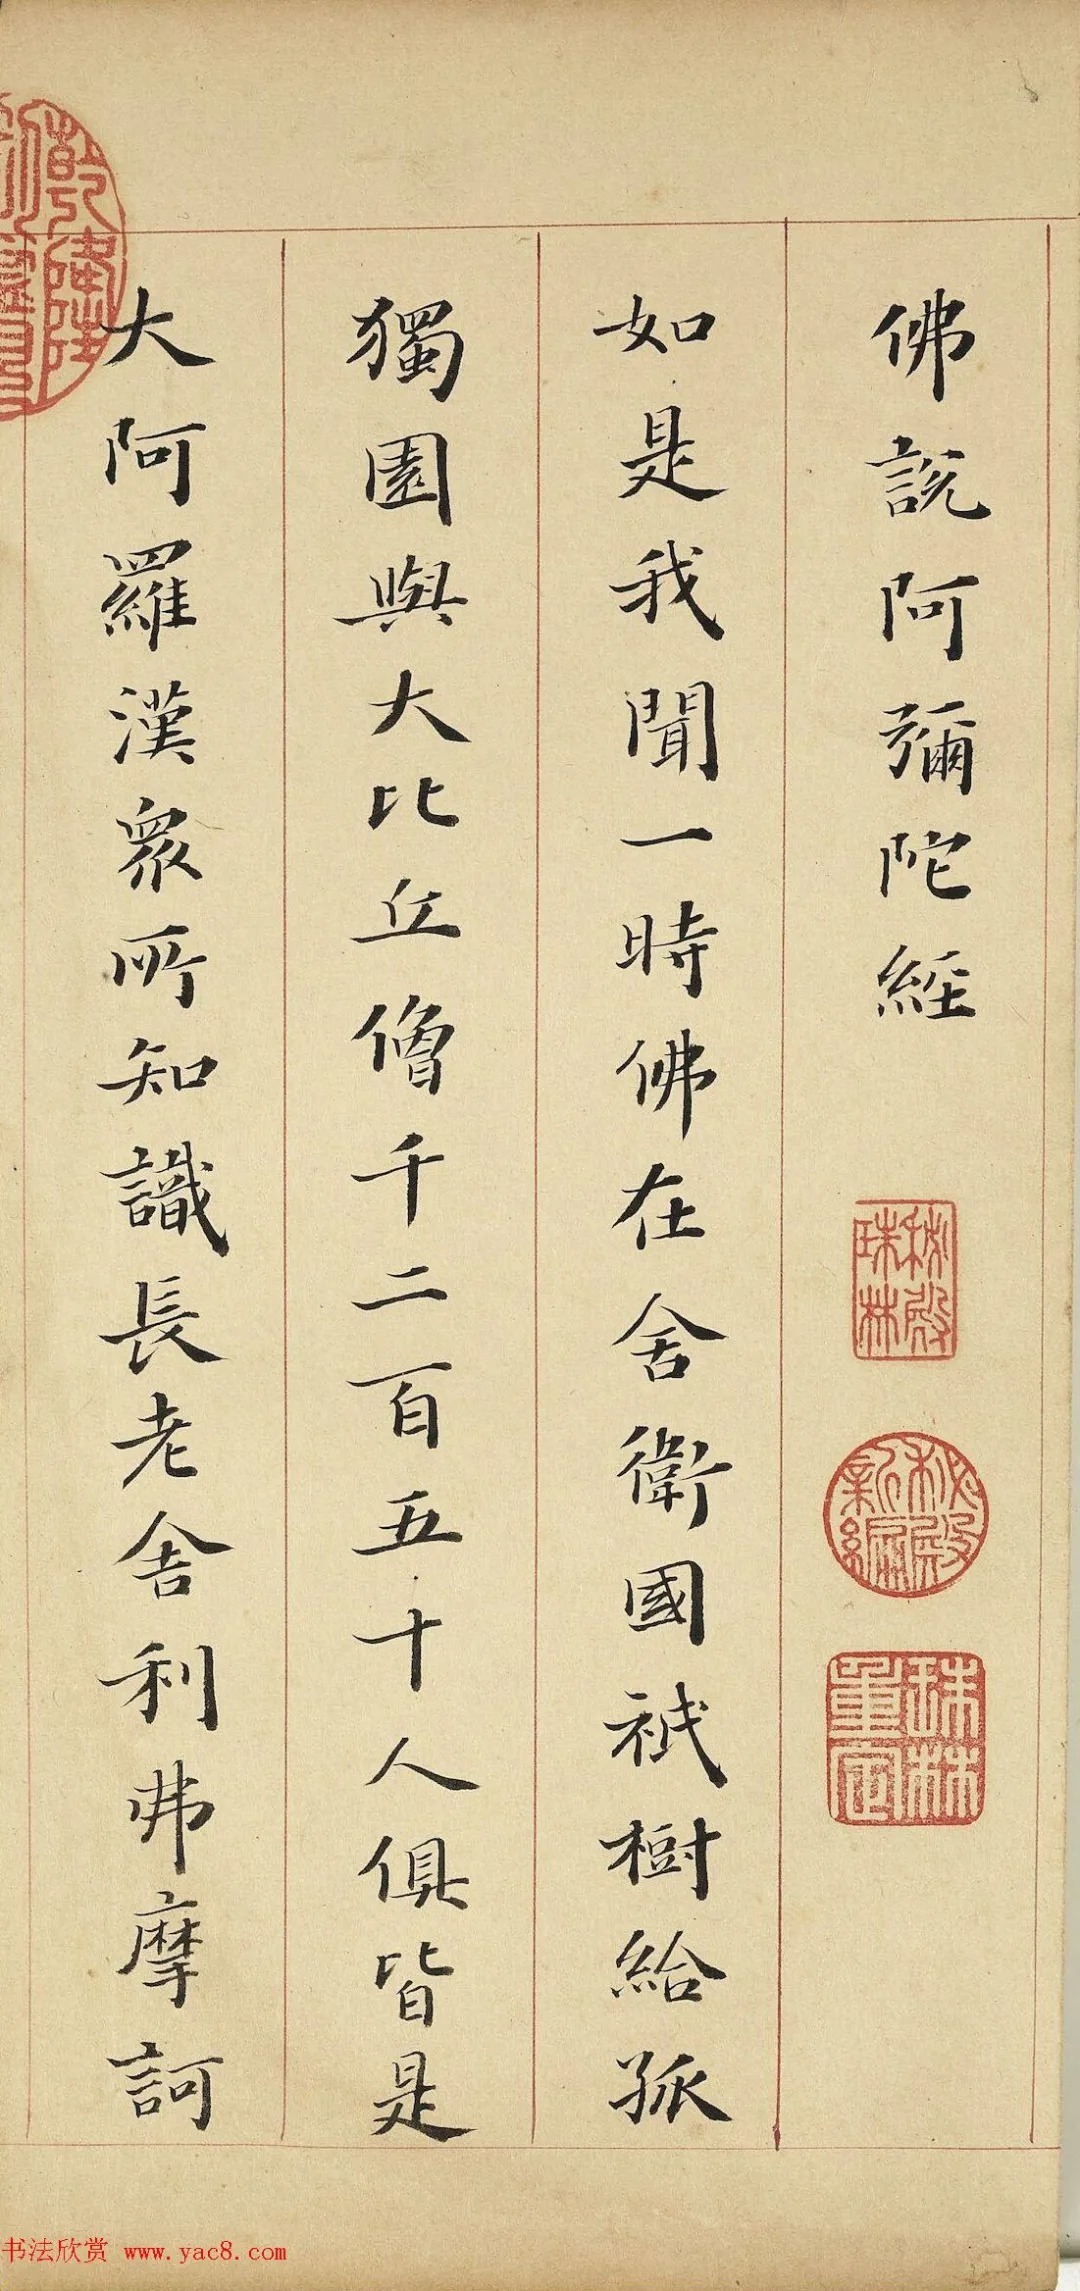 佛說阿彌陀經
秘殿珠林
秘殿新編
珠林重定
如是我聞一時佛在舍衛國祇樹給孤
獨園與大比丘僧千二百五十人俱皆是
大阿羅漢眾所知識長老舍利弗摩訶
乾隆
书法欣赏 www.yac8.com